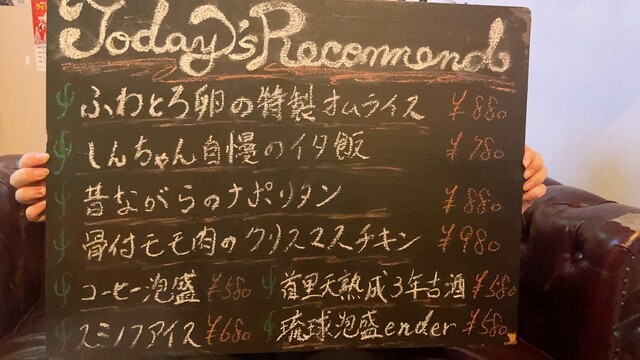 Today's Recommend
ふわとろ卵の特製オムライス ¥880
しんちゃん自慢のイタ飯 ¥780
昔ながらのナポリタン ¥880
骨付モモ肉のクリスマスチキン ¥980
コーヒー泡盛 ¥580 首里天熟成3年古酒 ¥580
スミノフアイス ¥680 琉球泡盛ender ¥580